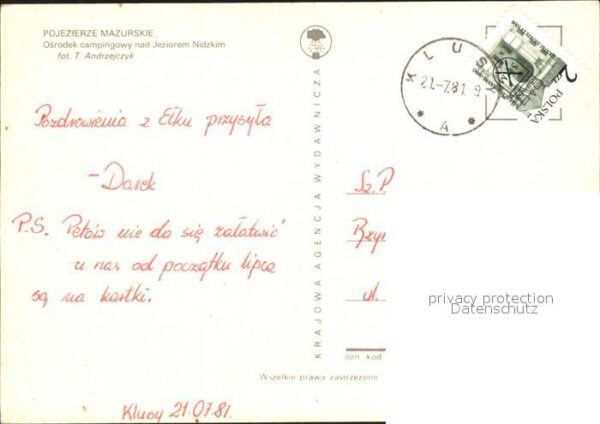 POJEZIERZE MAZURSKIE
Ośrodek campingowy nad Jeziorem Nidzkim
fot. T. Andrzejczyk
Pozdrowienia z Ełku przysyła
- Darek
P.S. Petów nie da się załatwić
u nas od początku lipca
są na kartki.
Klusy 21.07.81.
KRAJOWA AGENCJA WYDAWNICZA
KLUSY
21.-7.81.9
* A *
POLSKA
Sz.P
ul.
privacy protection
Datenschutz
ozn. kod.
Wszelkie prawa zastrzeżone